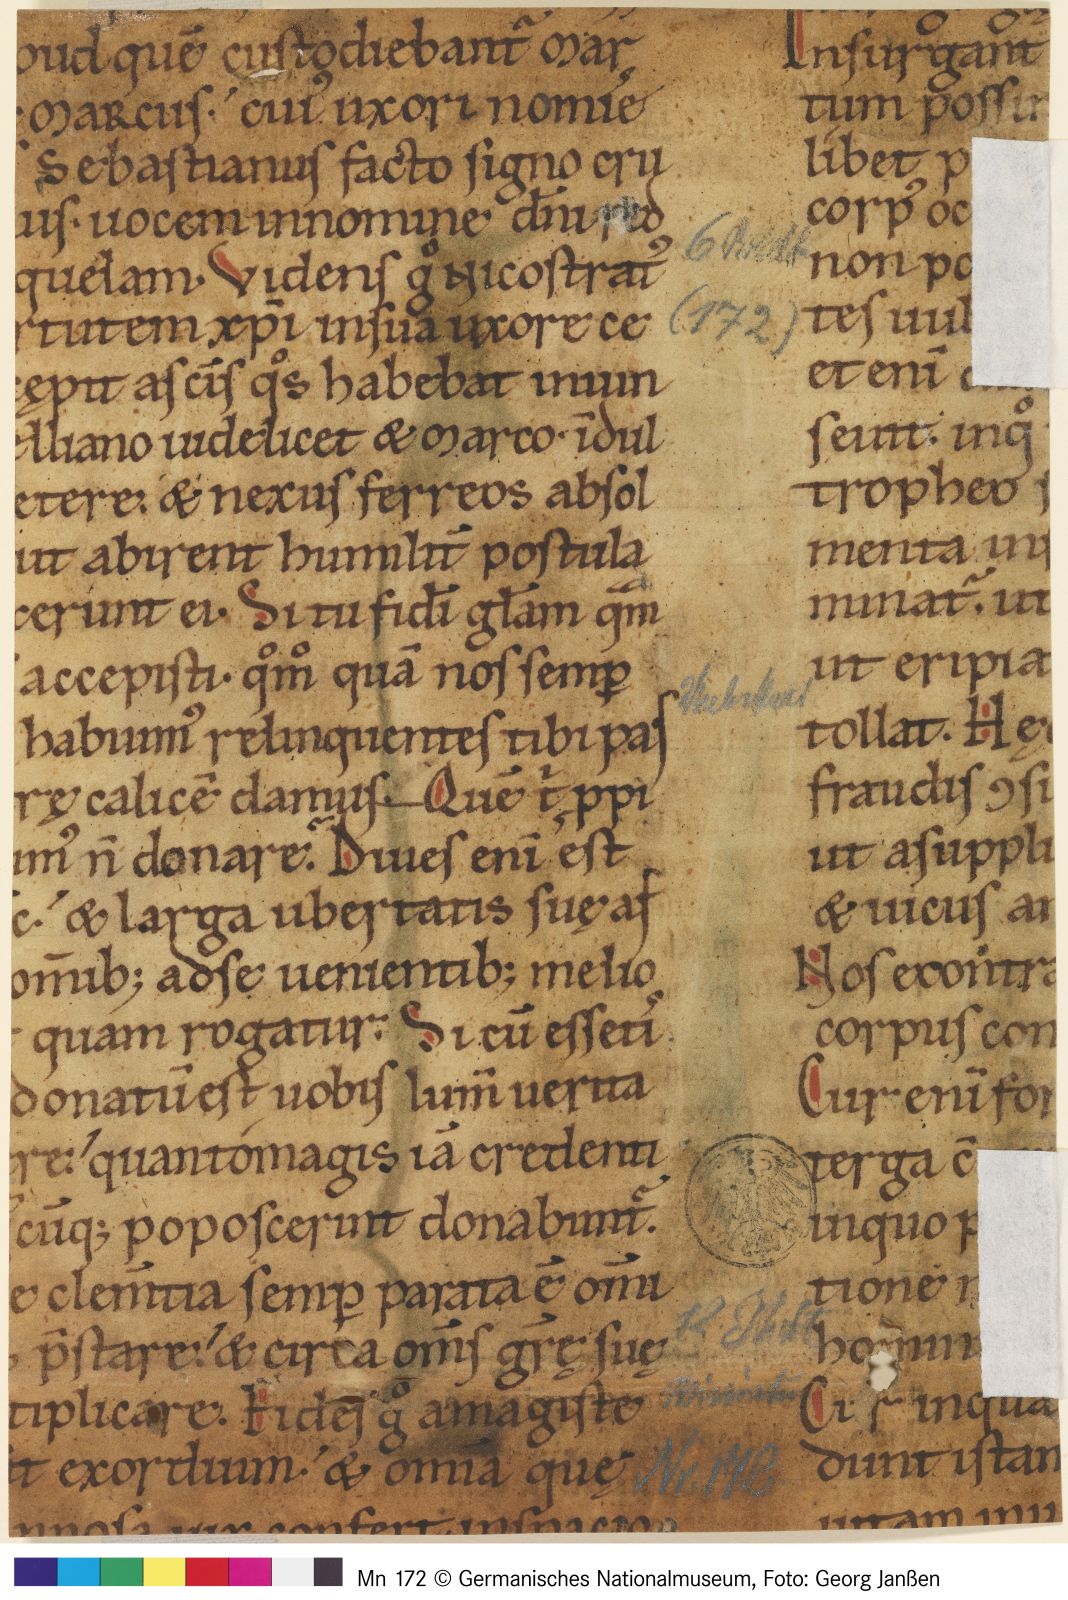 oud quē custodiebant᷑ mar
marcus. cui᷒ uxori nomine
Sebastianus facto signo cru
uis. uocem innomine dn̄i red
quelam. Videns gͦ Nicostrat᷒
rtutem xp̄i insua uxore ce
cępit ascīs qͦs habebat inuin
elliano uidelicet & marco. īdul
etere: & nexus ferreos absol
ut abirent humilit̄ postula
cerunt ei. Si tu fidī glām qm̄
accepisti. qͦmͦ quā nos semꝑ
habuim᷒ relinquentes tibi pas
rę calicē damus. Quē t͛ ꝓpi
im᷒ n̄ donare. Diues enī est
& larga ubertatis suę as
om̄ib; adse uenientib; melio
quam rogatur: Si cū esseti
donatū est uobis lum̄ uerita
re: quantomagis iā credenti
cūq; poposcerunt donabunt᷑.
e clem̄tia semꝑ parata ē om̄i
p̄stare: & circa om̄s gr̄ę suę
tiplicare. Fides gͦ a magiste
exordium. & om̄ia quę
confert. inspicio
Insurgant
tum possin
libet p
corp᷒ oc
non po
tes uul
et enī
seunt. inqͦ
tropheo s
menta ini
minat᷑. ut
ut eripia
tollat. Hęc
fraudis ꝯsi
ut asuppli
& uicus an
Nos econtra
corpus con
Cur enī for
terga c̄
inquo p
tione n
homin
Ci s̄ inqua
dunt istan
uitam inu
(172)
Mn 172 © Germanisches Nationalmuseum, Foto: Georg Janßen